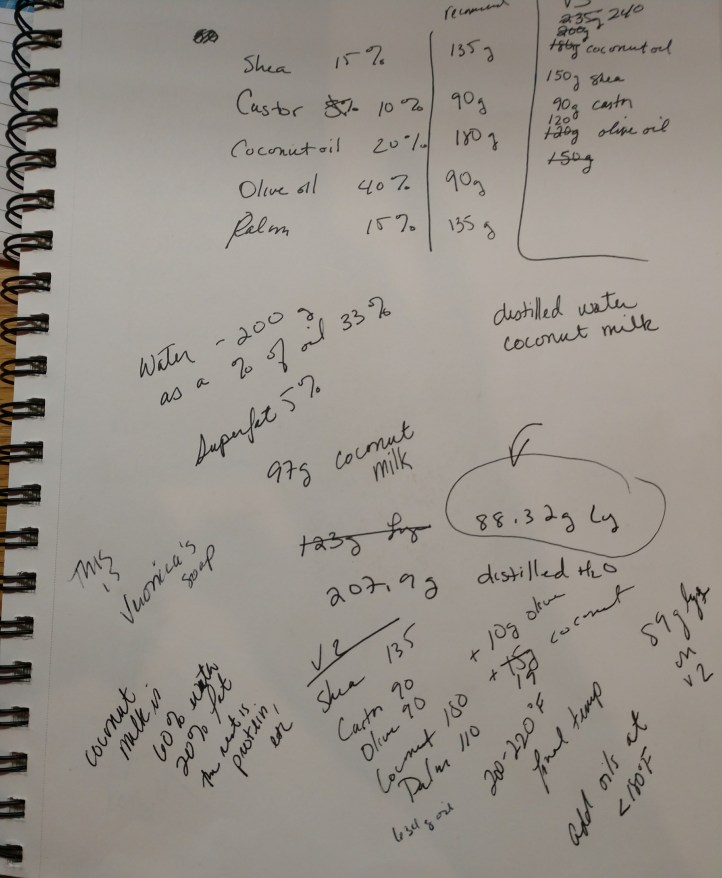 recommend
V3
235g 240
200g
180g coconut oil
150g shea
90g castor
120g
120g olive oil
150g
Shea 15% 135g
Castor 5% 10% 90g
Coconut oil 20% 180g
Olive oil 40% 90g
Palm 15% 135g
distilled water
coconut milk
Water - 200g
as a % of oil 33%
Superfat 5%
97g coconut
milk
88.32g Ly
123g Lye
207.9g distilled H2O
This
is
Veronica's
soap
V2
Shea 135
Castor 90
Olive 90 + 10g olive
Coconut 180 + 15g coconut
19
Palm 110
634g oil
89g lye
in
V2
coconut
milk is
60% water
20% fat
the rest is
protein,
etc
200-220°F
final temp
add oils at
<180°F